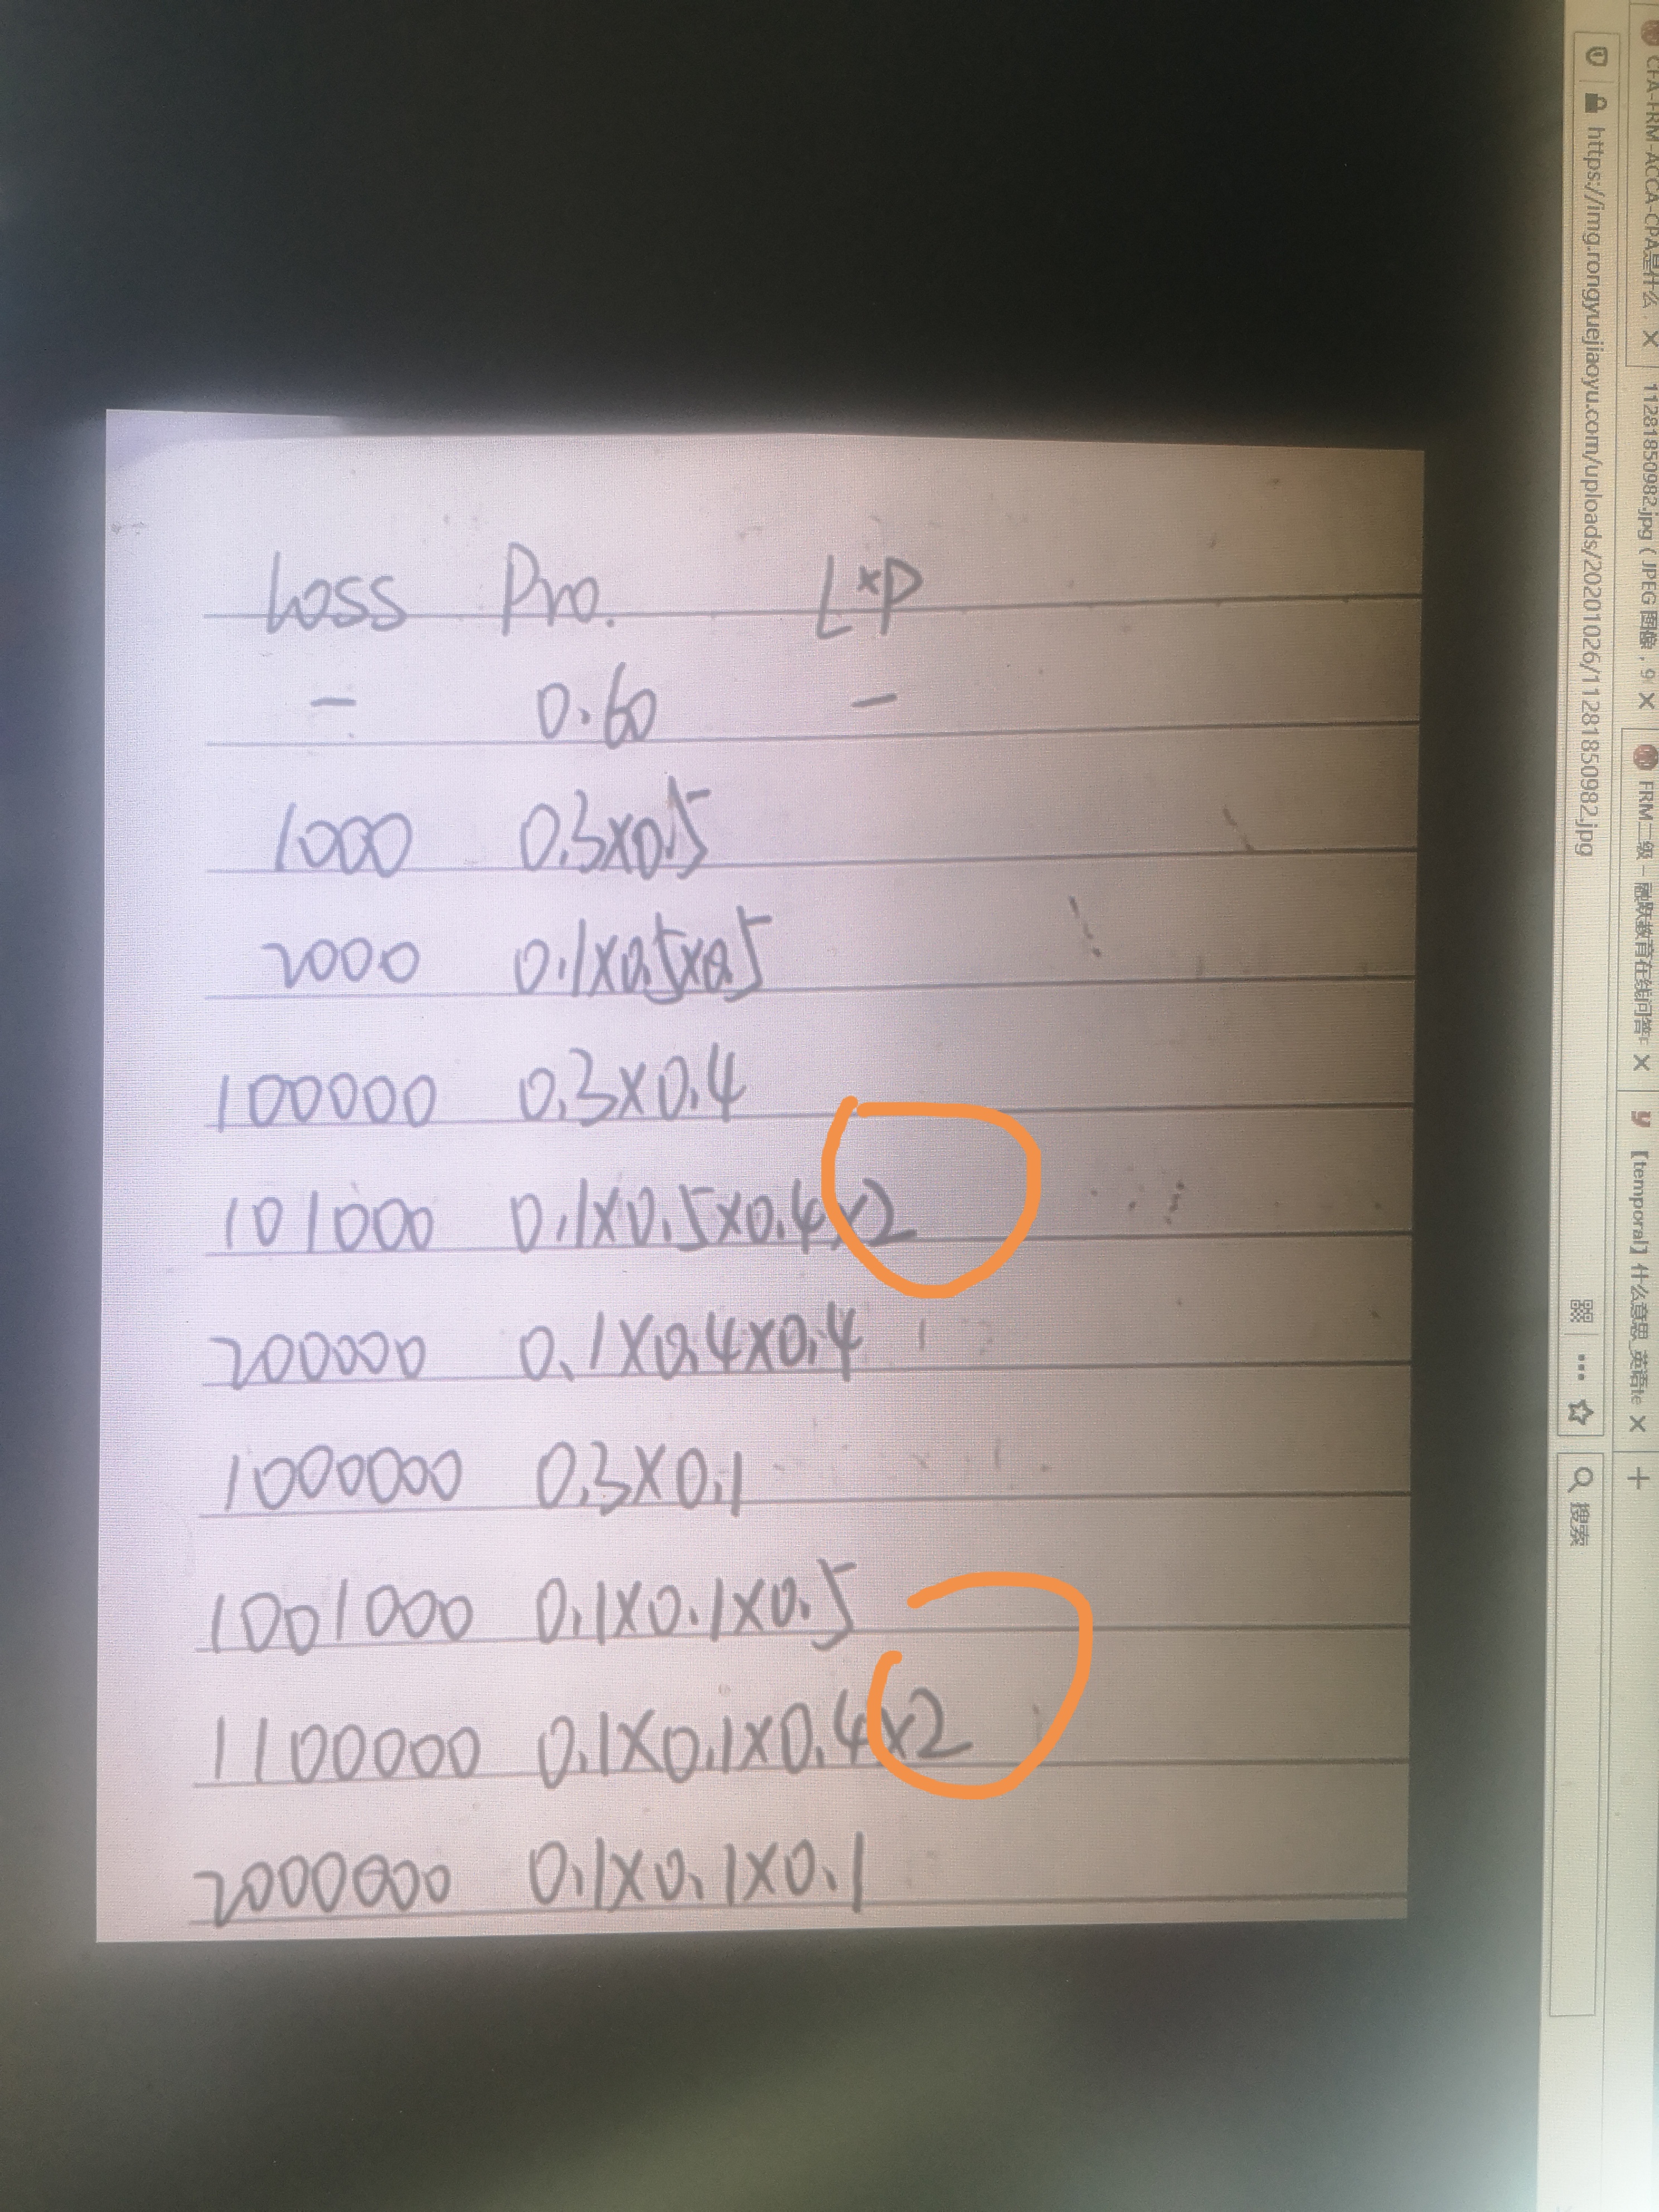 Loss Pro. L*P
— 0.60 —
1000 0.3×0.5
2000 0.1×0.5×0.5
100000 0.3×0.4
101000 0.1×0.5×0.4×2
200000 0.1×0.4×0.4
1000000 0.3×0.1
1001000 0.1×0.1×0.5
1100000 0.1×0.1×0.4×2
2000000 0.1×0.1×0.1
CFA-FRM-ACCA-CPA是什么 × 11281850982.jpg（JPEG 图像，9 × FRM二级 - 融跃教育在线问答 × 【temporal】什么意思_英语te × +
https://img.rongyuejiaoyu.com/uploads/20201026/11281850982.jpg ··· 搜索